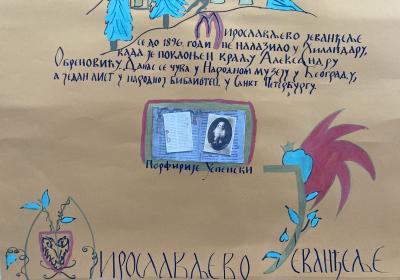 Мирослављево јеванђеље
се до 1896. године налазило у Хиландару,
када је поклоњен краљу Александру
Обреновићу. Данас се чува у Народном музеју у Београду,
а један лист у народној библиотец у Санкт Петербургу.
Порфирије Успенски
Мирослављево Јеванђеље